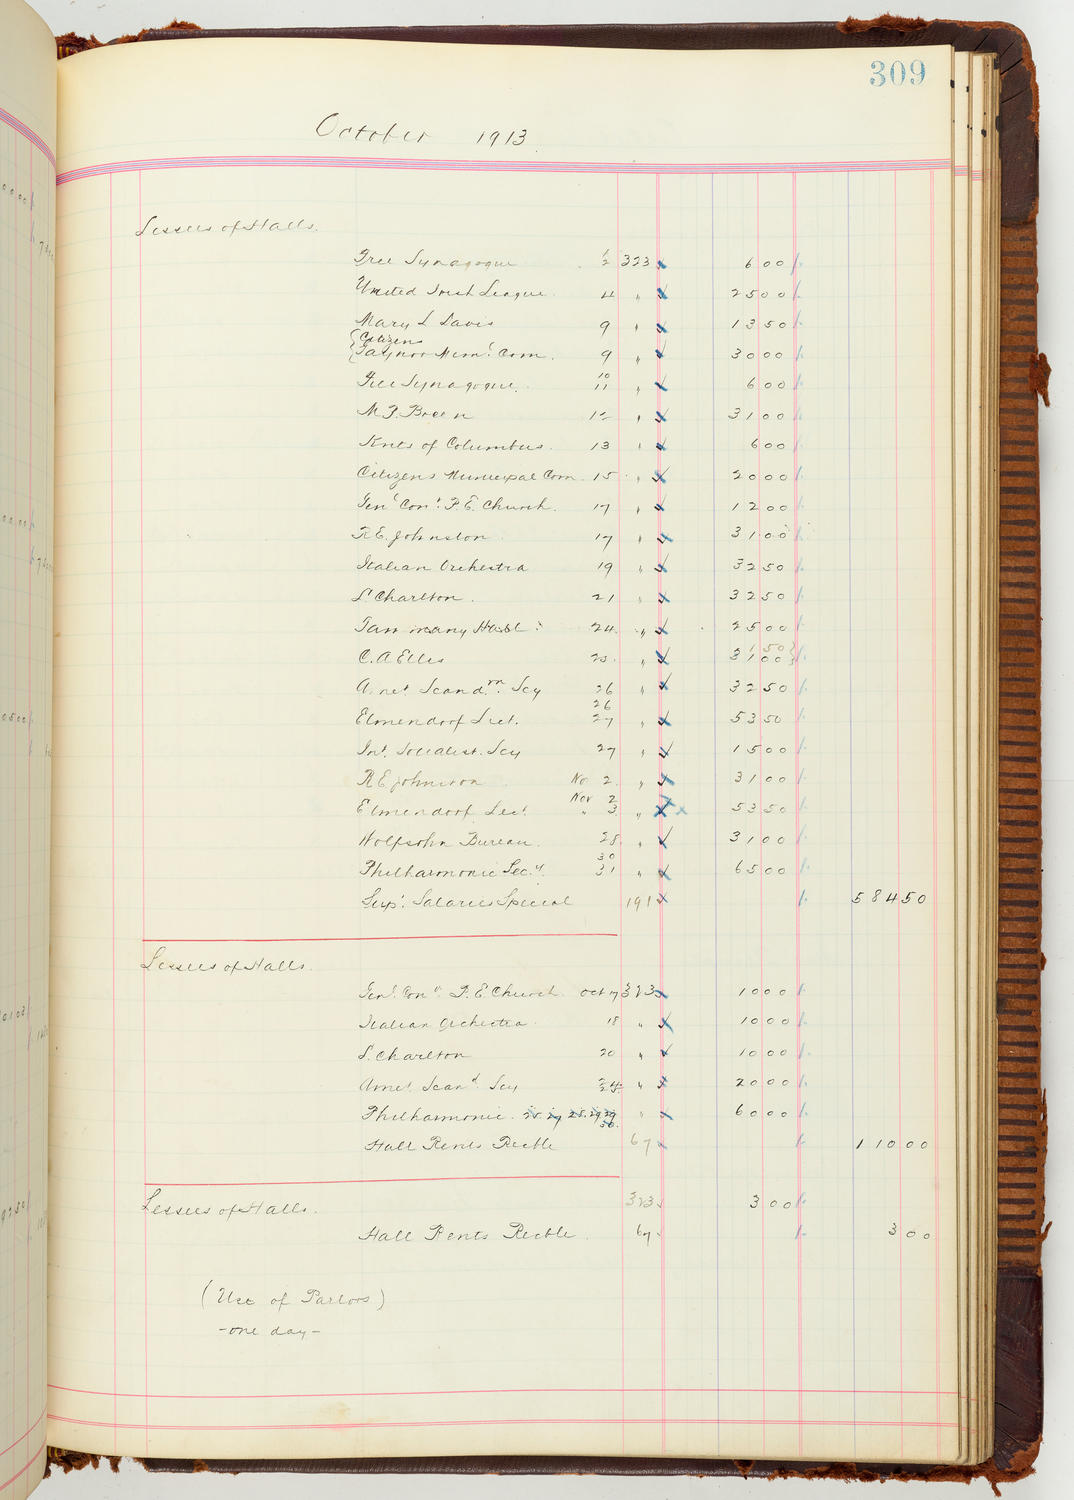 309
October 1913
Lessees of Halls.
Free Synagogue 1/2 323 6 00
United Irish League 4 " 25 00
Mary L Davis 9 " 13 50
{ Citizens
Gaynor Mem.l Com. 9 " 30 00
Free Synagogue. 10 11 " 6 00
M. P. Breen 12 " 31 00
Knts of Columbus. 13 " 6 00
Citizens Municipal Com. 15 " 20 00
Gen.l Con.t P. E. Church. 17 " 12 00
R E. Johnston 17 " 31 00
Italian Orchestra 19 " 32 50
L. Charlton. 21 " 32 50
Tammany Hall 24. " 25 00
C. A Ellis 25. " 31 00
Amer Scand.rn. Scy 26 " 32 50
Elmendorf Lect. 26 27 " 53 50
Int. Socialist. Scy 27 " 15 00
R E Johnston No 2. " 31 00
Elmendorf Lect. Nov 2 " 3. " 53 50
Wolfsohn Bureau. 28. " 31 00
Philharmonic Soc.y. 30 31 " 65 00
Sup.t Salaries Special 191 584 50
Lessees of Halls.
Gen.l Con.n P. E Church Oct 17 323 10 00
Italian Orchestra 18 " 10 00
L. Charlton 20 " 10 00
Amer. Scan.d Scy 24. " 20 00
Philharmonic " 60 00
Hall Rents Recble 67 110 00
Lessees of Halls. 323 3 00
Hall Rents Recble. 67 3 00
(Use of Parlors)
- one day -